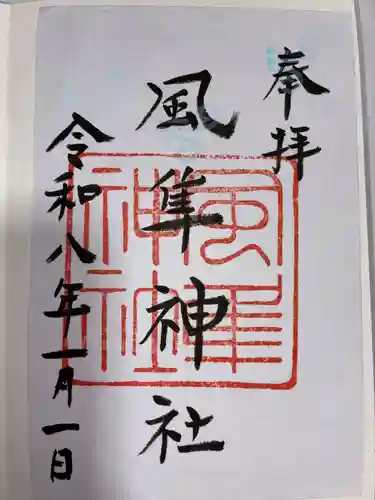 奉拝
風隼神社
令和八年一月一日
風隼神社